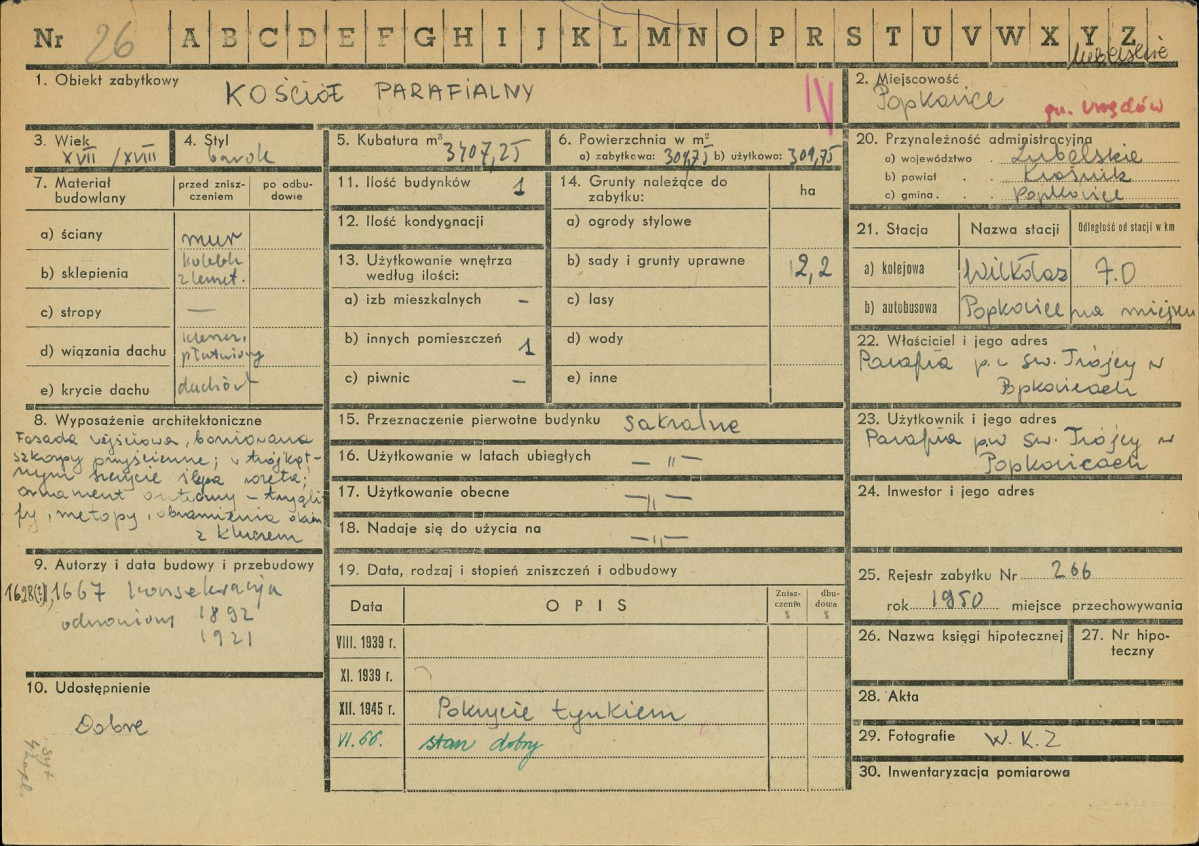 Nr 26 A B C D E F G H I J K L M N O P R S T U V W X Y Z
lubelskie
1. Obiekt zabytkowy
KOŚCIÓŁ PARAFIALNY
IV
2. Miejscowość
Popkowice
gm. Urzędów
3. Wiek
XVII / XVIII
4. Styl
barok
5. Kubatura m³
3407,25
6. Powierzchnia w m²
a) zabytkowa: 309,75 b) użytkowa: 309,75
20. Przynależność administracyjna
a) województwo . Lubelskie
b) powiat . . Kraśnik
c) gmina . . Popkowice
7. Materiał budowlany
przed zniszczeniem
po odbudowie
a) ściany mur
b) sklepienia koleb. z lunet.
c) stropy —
d) wiązania dachu
płatwiowy
e) krycie dachu dachówk
11. Ilość budynków 1
12. Ilość kondygnacji
13. Użytkowanie wnętrza
według ilości:
a) izb mieszkalnych –
b) innych pomieszczeń 1
c) piwnic –
14. Grunty należące do
zabytku:
ha
a) ogrody stylowe
b) sady i grunty uprawne 2,2
c) lasy
d) wody
e) inne
21. Stacja Nazwa stacji Odległość od stacji w km
a) kolejowa Wilkołaz 7.0
b) autobusowa Popkowice na miejscu
22. Właściciel i jego adres
Parafia p.w. św. Trójcy w
Popkowicach
8. Wyposażenie architektoniczne
Fasada wejściowa, boniowana
szkarpy przyścienne; w trójkąt-
nym szczycie ślepa rozeta;
ornament antyczny – trygli
fy, metopy, obramienia okien
z kluczem
15. Przeznaczenie pierwotne budynku sakralne
16. Użytkowanie w latach ubiegłych — „ —
17. Użytkowanie obecne — „ —
18. Nadaje się do użycia na — „ —
23. Użytkownik i jego adres
Parafia p.w. św. Trójcy w
Popkowicach
24. Inwestor i jego adres
9. Autorzy i data budowy i przebudowy
1628(?), 1667 konsekracja
odnowiony 1892
1921
10. Udostępnienie
Dobre
19. Data, rodzaj i stopień zniszczeń i odbudowy
Data OPIS Zniszczenia % dbudowa %
VIII. 1939 r.
XI. 1939 r.
XII. 1945 r. Pokrycie tynkiem
VI. 66. stan dobry
25. Rejestr zabytku Nr 266
rok 1950 miejsce przechowywania
26. Nazwa księgi hipotecznej
27. Nr hipoteczny
28. Akta
29. Fotografie W.K.Z
30. Inwentaryzacja pomiarowa